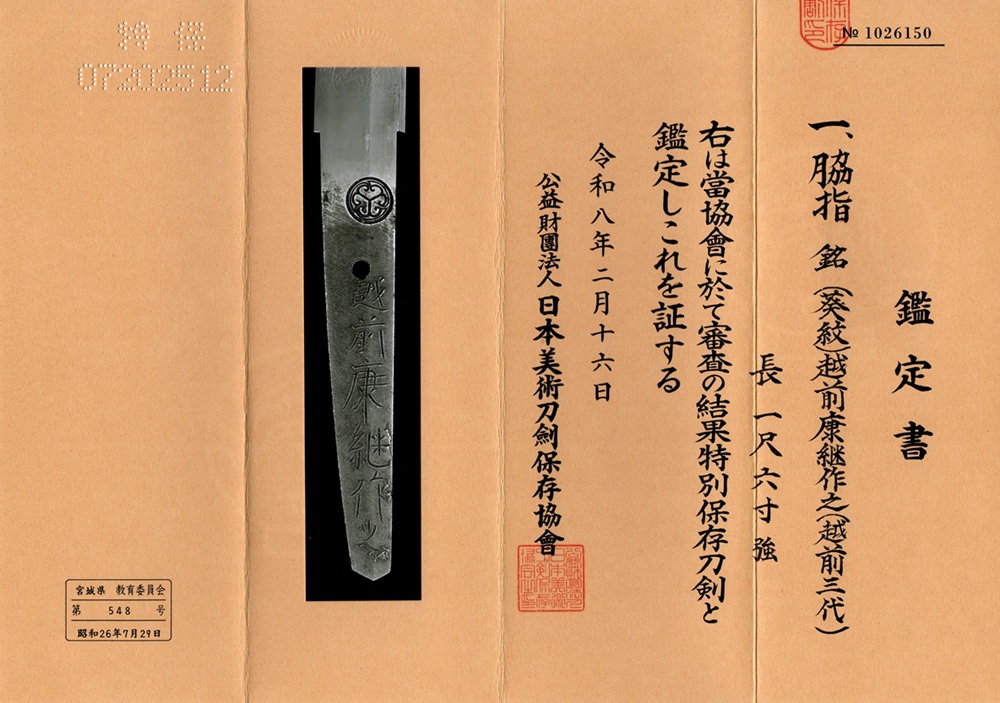 № 1026150
鑑定書
一、脇指 銘(葵紋)越前康継作之(越前三代)
長一尺六寸強
右は當協會に於て審査の結果特別保存刀剣と
鑑定しこれを証する
令和八年二月十六日
公益財團法人日本美術刀劍保存協會
越前康継作
特保
07202512
宮城県 教育委員会
第 548 号
昭和26年7月29日